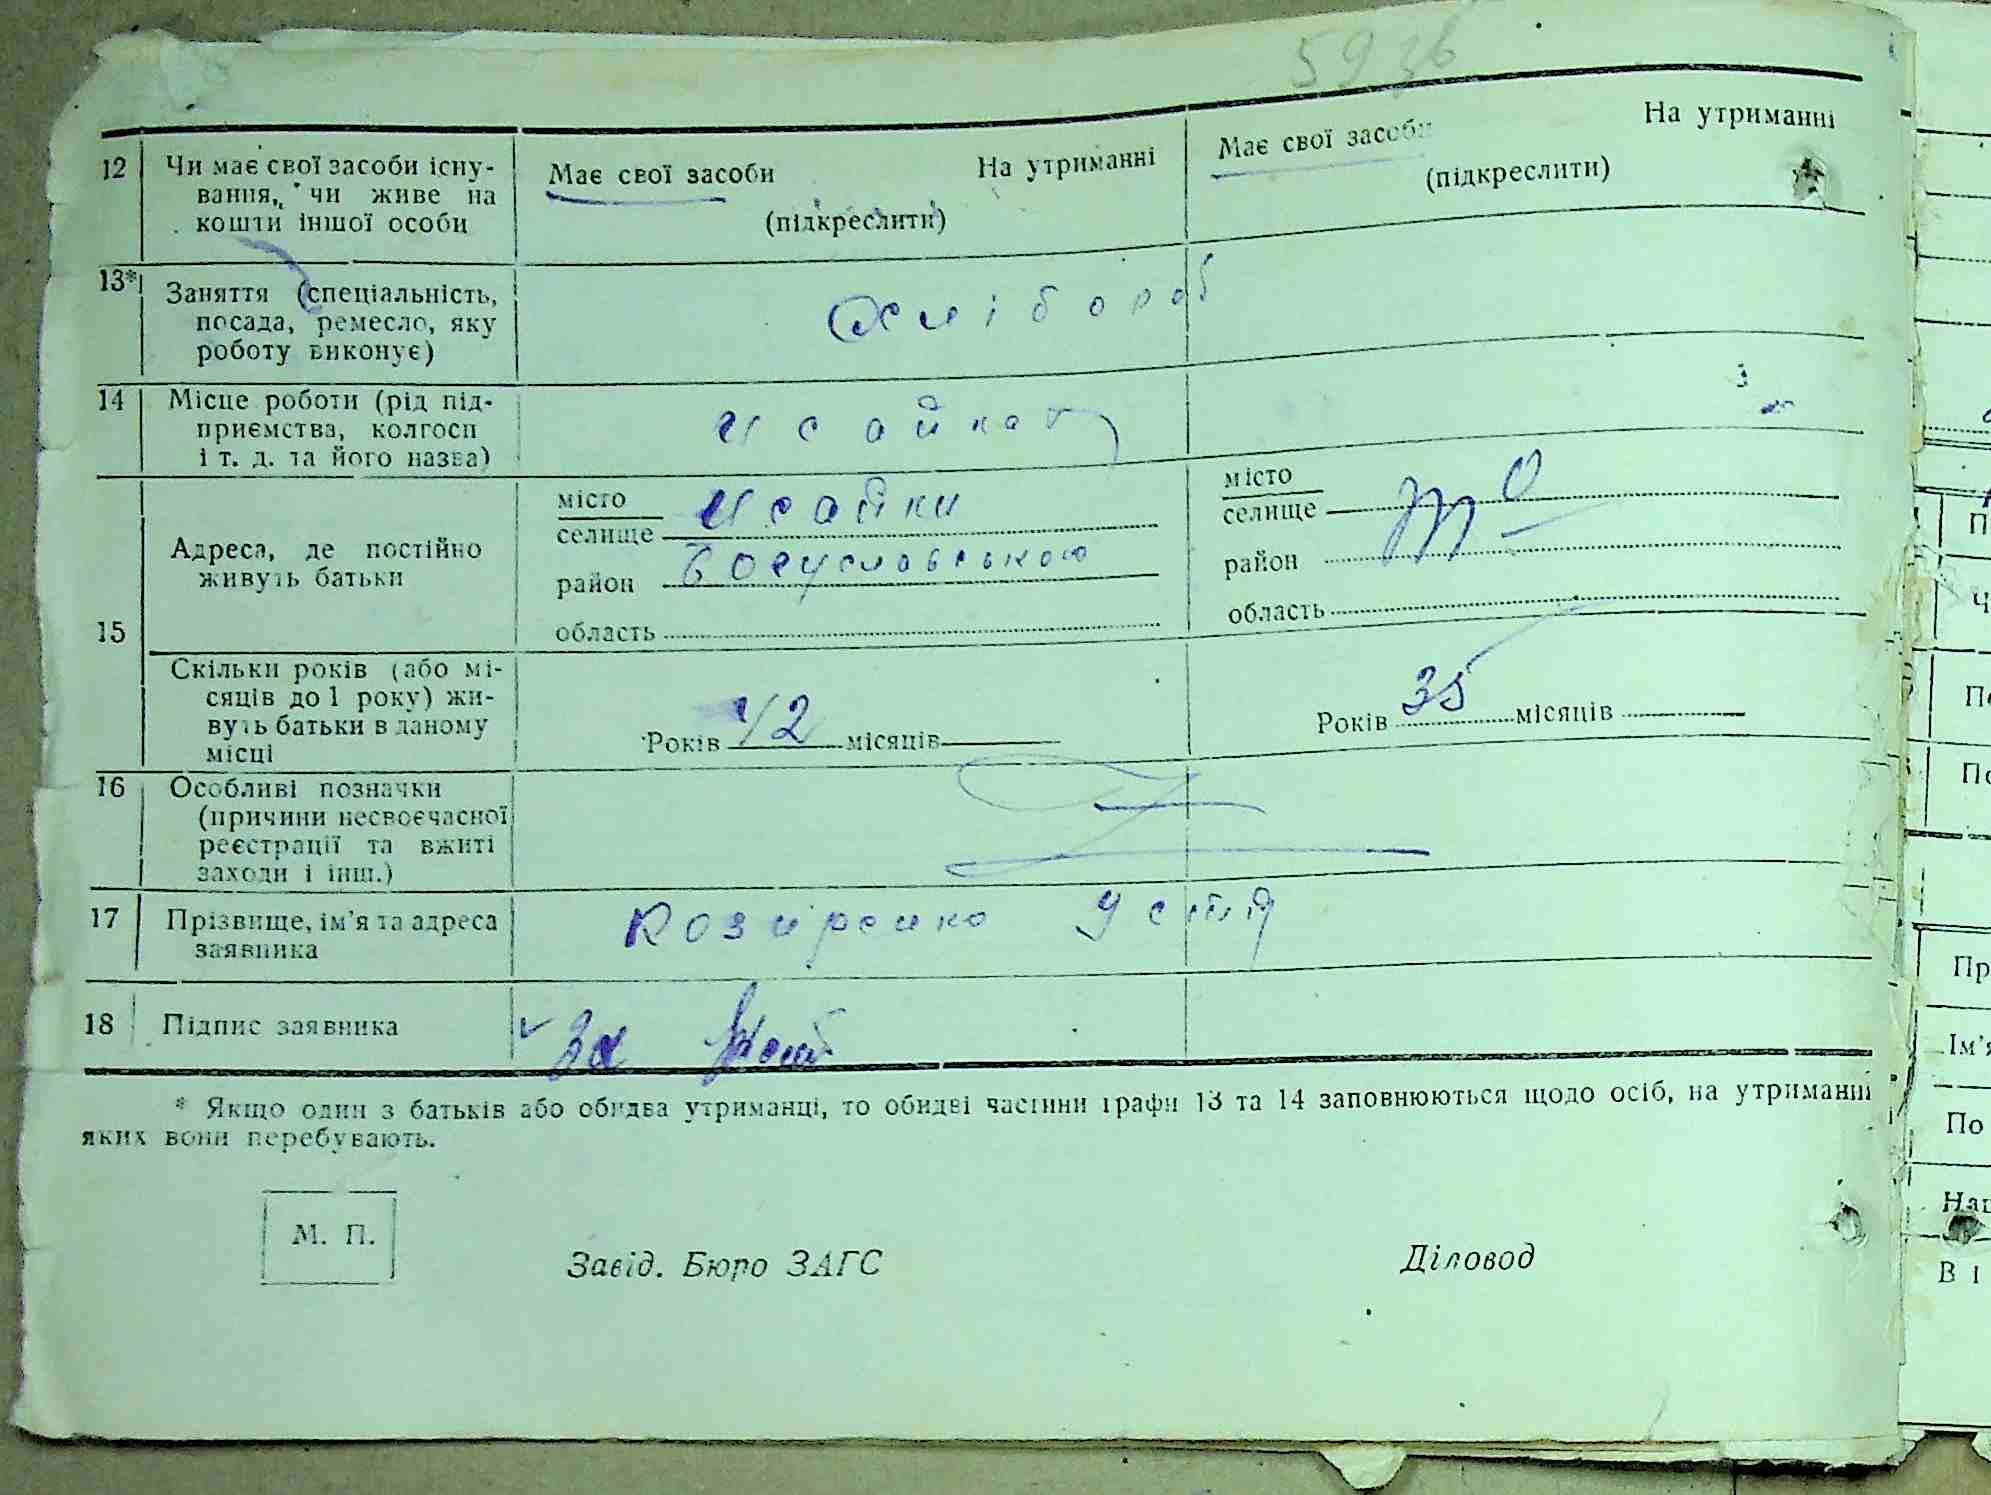 59 зв
12 Чи має свої засоби існу-
вання, чи живе на
кошти іншої особи
Має свої засоби На утриманні
(підкреслити)
Має свої засоби На утриманні
(підкреслити)
13* Заняття (спеціальність,
посада, ремесло, яку
роботу виконує)
Хлібороб
14 Місце роботи (рід під-
приємства, колгосп
і т. д. та його назва)
15 Адреса, де постійно
живуть батьки
місто
селище Исайки
район Богуславського
область
місто
селище
район
область
то
Скільки років (або мі-
сяців до 1 року) жи-
вуть батьки в даному
місці
Років 42 місяців
Років 35 місяців
16 Особливі позначки
(причини несвоєчасної
реєстрації та вжиті
заходи і інш.)
17 Прізвище, ім'я та адреса
заявника
18 Підпис заявника
За
* Якщо один з батьків або обидва утриманці, то обидві частини графи 13 та 14 заповнюються щодо осіб, на утриманні
яких вони перебувають.
М. П.
Завід. Бюро ЗАГС Діловод